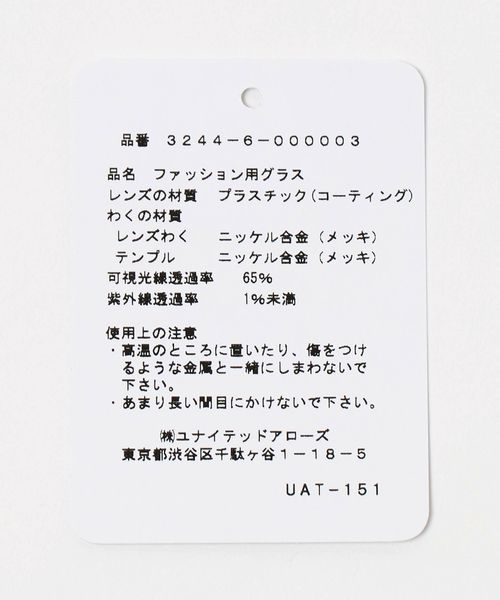 品番 3244-6-000003
品名 ファッション用グラス
レンズの材質 プラスチック(コーティング)
わくの材質
レンズわく ニッケル合金(メッキ)
テンプル ニッケル合金(メッキ)
可視光線透過率 65%
紫外線透過率 1%未満
使用上の注意
・高温のところに置いたり、傷をつけ
るような金属と一緒にしまわないで
下さい。
・あまり長い間目にかけないで下さい。
㈱ユナイテッドアローズ
東京都渋谷区千駄ヶ谷1-18-5
UAT-151